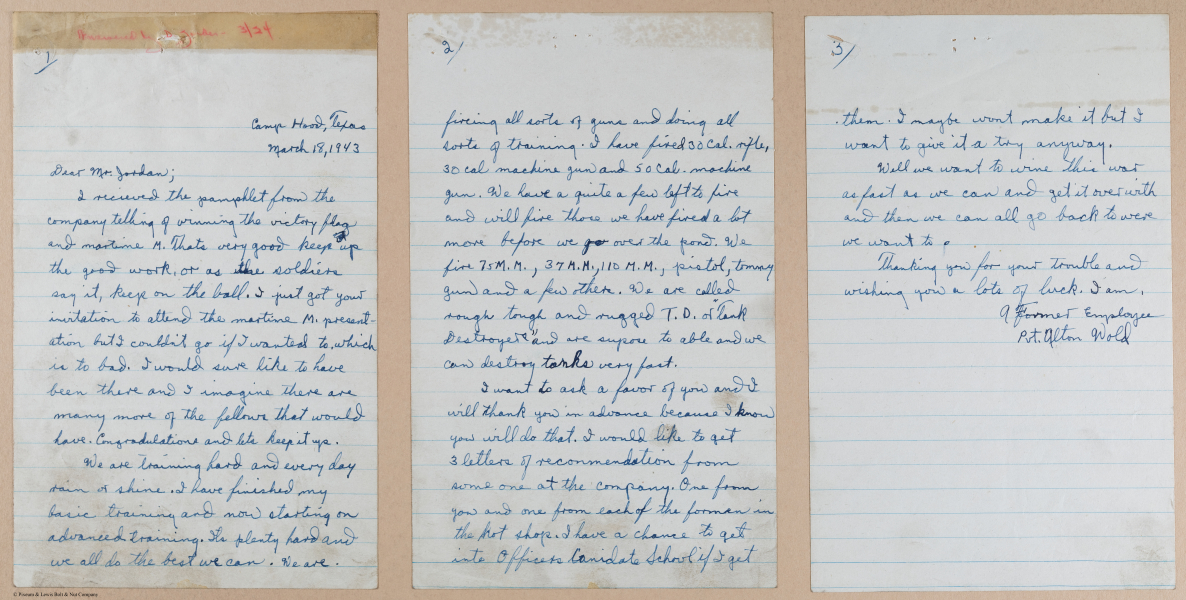 3/24
1/
Camp Hood, Texas
March 18, 1943
Dear Mr. Jordan;
I recieved the pamphlet from the
company telling of winning the victory flag
and martime M. Thats very good keep up
the good work, or as the soldiers
say it, keep on the ball. I just got your
invitation to attend the martime M. present-
ation but I couldn't go if I wanted to, which
is to bad. I would sure like to have
been there and I imagine there are
many more of the fellows that would
have. Congradulations and lets keep it up.
We are training hard and every day
rain or shine. I have finished my
basic training and now starting on
advanced training. Its plenty hard and
we all do the best we can. We are.
2/
fireing all sorts of guns and doing all
sorts of training. I have fired 30 Cal. rifle,
30 cal machine gun and 50 Cal. machine
gun. We have a quite a few left to fire
and will fire those we have fired a lot
more before we go over the pond. We
fire 75 M.M., 37 M.M., 110 M.M., pistol, tommy
gun and a few others. We are called
rough tough and rugged T.D. or "Tank
Destroyers" and are supose to able and we
can destroy tanks very fast.
I want to ask a favor of you and I
will thank you in advance because I know
you will do that. I would like to get
3 letters of reconmendation from
some one at the company. One from
you and one from each of the forman in
the hot shop. I have a chance to get
into Officers Canidate School if I get
3/
them. I maybe wont make it but I
want to give it a try anyway.
Well we want to wine this war
as fast as we can and get it over with
and then we can all go back to were
we want to.
Thanking you for your trouble and
wishing you a lots of luck. I am.
A Former Employee
Pvt. Alton Wold
© Pioneer & Lewis Bolt & Nut Company